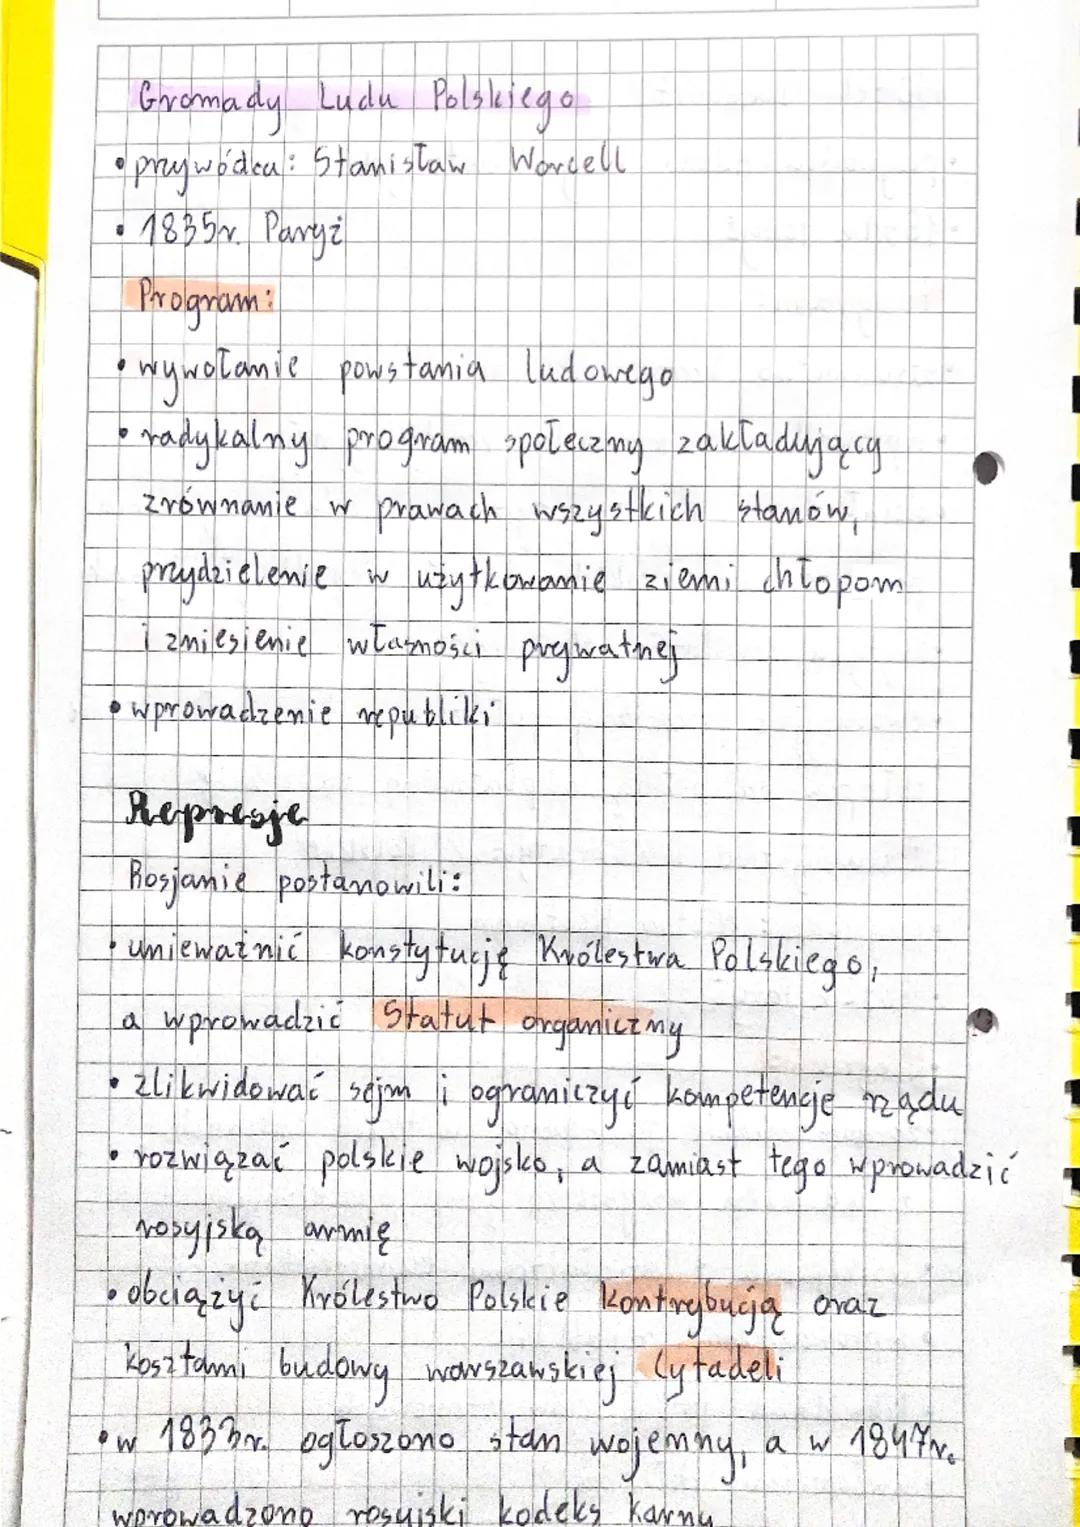 Gromady Ludu Polskiego
• przywódca: Stanisław Worcell
• 1835r. Paryż
Program:
• wywołanie powstania ludowego
• radykalny program społeczny zakładujący
zrównanie w prawach wszystkich stanów,
przydzielenie w użytkowanie ziemi chłopom
i zniesienie własności prywatnej
• wprowadzenie republiki
Represje
Rosjanie postanowili:
• unieważnić konstytucję Królestwa Polskiego,
a wprowadzić Statut organiczny
• zlikwidować sejm i ograniczyć kompetencje rządu
• rozwiązać polskie wojsko, a zamiast tego wprowadzić
rosyjską armię
• obciążyć Królestwo Polskie kontrybucją oraz
kosztami budowy warszawskiej Cytadeli
• w 1833r. ogłoszono stan wojenny, a w 1847r.
wprowadzono rosyjski kodeks karny